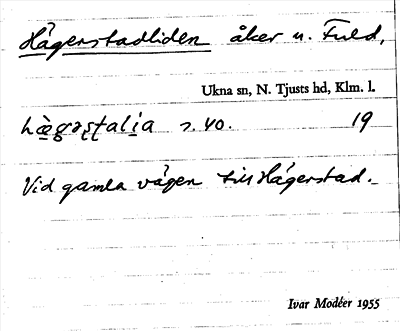 Hägerstadliden åker u. Fuld,
Ukna sn, N. Tjusts hd, Klm. l.
hæ̀gərʂʈalia r. 40. 19
Vid gamla vägen till Hägerstad.
Ivar Modéer 1955